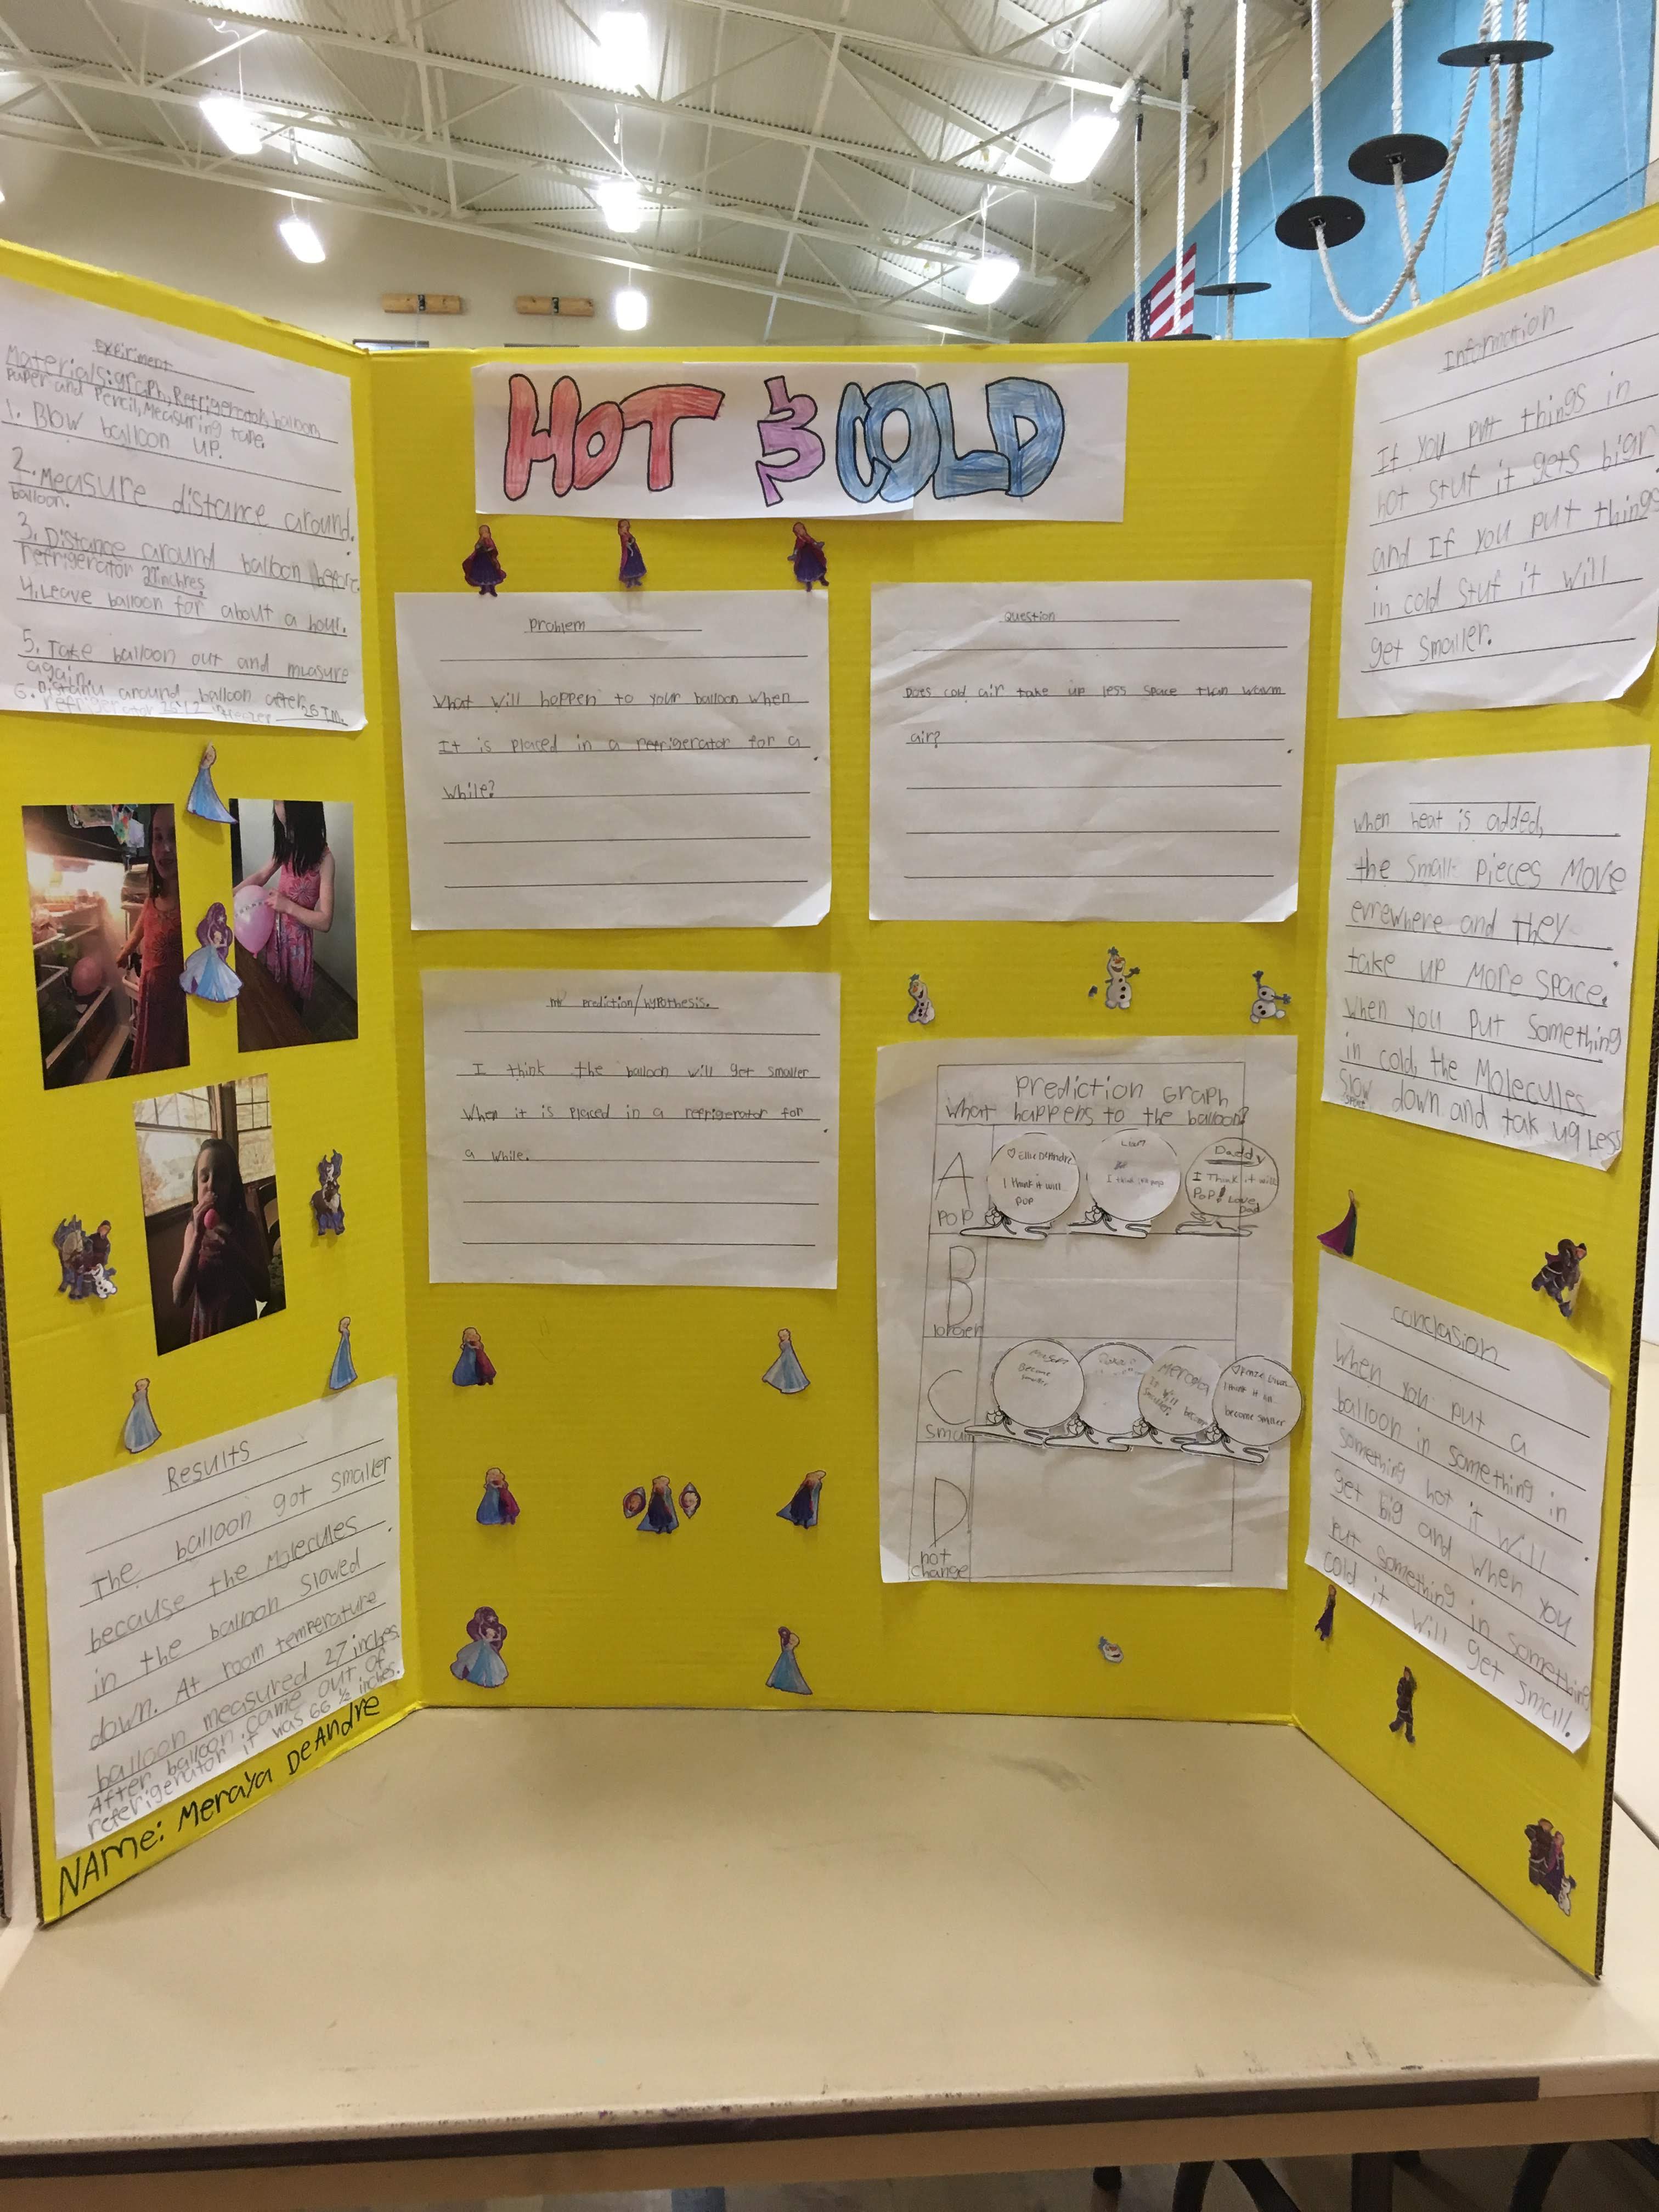 Expiriment
Materials: graph, Refrigerator, balloon,
Paper and Pencil, Measuring tape.
1. Blow balloon up.
2. Measure distance around
balloon.
3. Distance around balloon before
refrigerator 27 inchres
4. Leave balloon for about a hour.
5. Take balloon out and measure
again.
6. around balloon after
refrigerator
Results
The balloon got smaller
because the Molecules
in the balloon Slowed
down. At room temperature
balloon measured 27 inches
After balloon came out of
referigerator it was 66 ½ inches.
NAMe: Meraya DeAndre
HOT & COLD
Problem
What will happen to your balloon when
It is placed in a refrigerator for a
While?
Question
Does cold air take up less space than warm
air?
My prediction/Hypothesis.
I think the balloon will get smaller
When it is placed in a refrigerator for
a while.
Prediction Graph
What happens to the balloon?
A
POP
♡ Ellie DeAndre
I think it will
POP
Liam
I think
Daddy
I Think it will
POP! Love,
Dad
B
larger
C
small
Mason
Become
smaller
Meraya
It Will become
Smaller.
I think it will
become smaller
D
not
change
Information
If You put things in
hot stuf it gets bigr
and If you put things
in cold stuf it will
get smaller.
When heat is added,
the Small Pieces Move
errewhere and they
take up More Space.
When you Put Something
in cold, the Molecules
Slow down and tak up Less
conclasion
When you put a
balloon in something in
something hot it will
get big and when you
put something in something
cold it will get small.